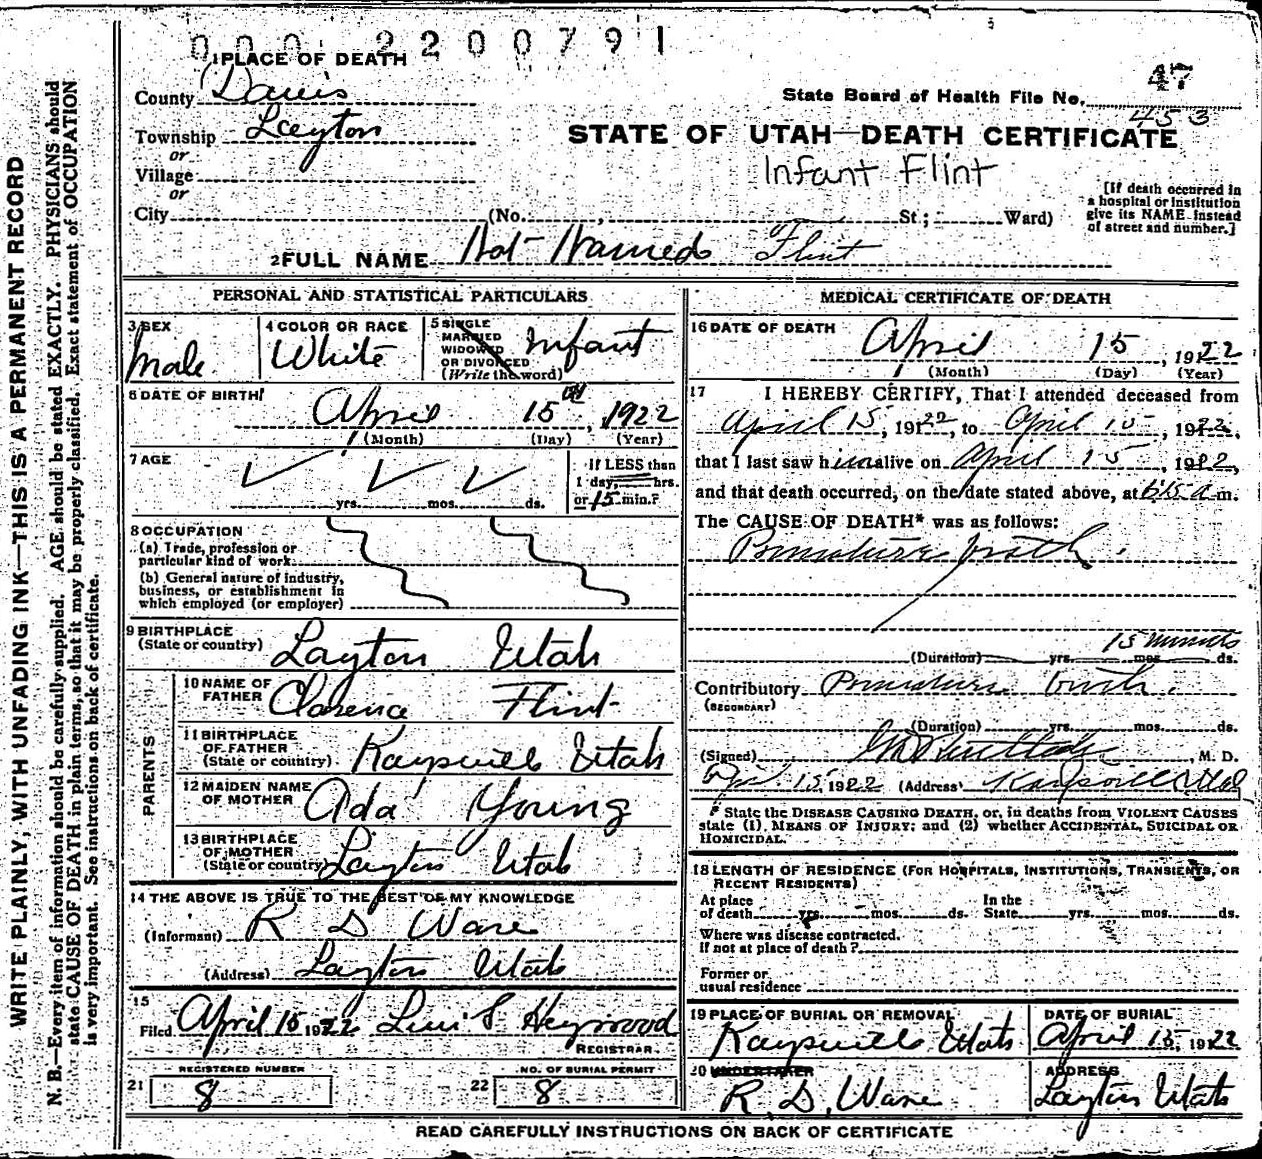 0 0 0 2 2 0 0 7 9 1
1 PLACE OF DEATH
County Davis
Township Layton
or
Village
or
City (No. , St; Ward)
47
State Board of Health File No. 453
STATE OF UTAH—DEATH CERTIFICATE
Infant Flint
[If death occurred in
a hospital or institution
give its NAME instead
of street and number.]
2 FULL NAME Not Named Flint
PERSONAL AND STATISTICAL PARTICULARS
3 SEX
Male
4 COLOR OR RACE
White
5 SINGLE
MARRIED
WIDOWED
OR DIVORCED
(Write the word)
Infant
6 DATE OF BIRTH
April 15th, 1922
(Month) (Day) (Year)
7 AGE
yrs. mos. ds.
If LESS than
1 day, hrs.
or 15 min.?
8 OCCUPATION
(a) Trade, profession or
particular kind of work
(b) General nature of industry,
business, or establishment in
which employed (or employer)
9 BIRTHPLACE
(State or country) Layton Utah
PARENTS
10 NAME OF
FATHER Clarence Flint
11 BIRTHPLACE
OF FATHER
(State or country) Kaysville Utah
12 MAIDEN NAME
OF MOTHER Ada Young
13 BIRTHPLACE
OF MOTHER
(State or country) Layton Utah
14 THE ABOVE IS TRUE TO THE BEST OF MY KNOWLEDGE
(Informant) R D Ware
(Address) Layton Utah
15
Filed April 15 1922 S Heywood
REGISTRAR.
REGISTERED NUMBER
21 8
NO. OF BURIAL PERMIT
22 8
MEDICAL CERTIFICATE OF DEATH
16 DATE OF DEATH
April 15, 19122
(Month) (Day) (Year)
17 I HEREBY CERTIFY, That I attended deceased from
April 15, 19122, to April 15, 1922,
that I last saw him alive on April 15, 1922,
and that death occurred, on the date stated above, at a m.
The CAUSE OF DEATH* was as follows:
Premature birth.
15 minutes
(Duration) yrs. mos. ds.
Contributory Premature birth.
(SECONDARY)
(Duration) yrs. mos. ds.
(Signed) , M. D.
Apr. 15, 1922 (Address) Kaysville Utah
* State the DISEASE CAUSING DEATH, or, in deaths from VIOLENT CAUSES
state (1) MEANS OF INJURY; and (2) whether ACCIDENTAL, SUICIDAL OR
HOMICIDAL.
18 LENGTH OF RESIDENCE (FOR HOSPITALS, INSTITUTIONS, TRANSIENTS, OR
RECENT RESIDENTS)
At place In the
of death yrs. mos. ds. State yrs. mos. ds.
Where was disease contracted,
If not at place of death?
Former or
usual residence
19 PLACE OF BURIAL OR REMOVAL
Kaysville Utah
DATE OF BURIAL
April 15, 19122
20 UNDERTAKER
R. D. Ware
ADDRESS
Layton Utah
READ CAREFULLY INSTRUCTIONS ON BACK OF CERTIFICATE
WRITE PLAINLY, WITH UNFADING INK—THIS IS A PERMANENT RECORD
N. B.—Every item of information should be carefully supplied. AGE should be stated EXACTLY. PHYSICIANS should
state CAUSE OF DEATH in plain terms, so that it may be properly classified. Exact statement of OCCUPATION
is very important. See instructions on back of certificate.